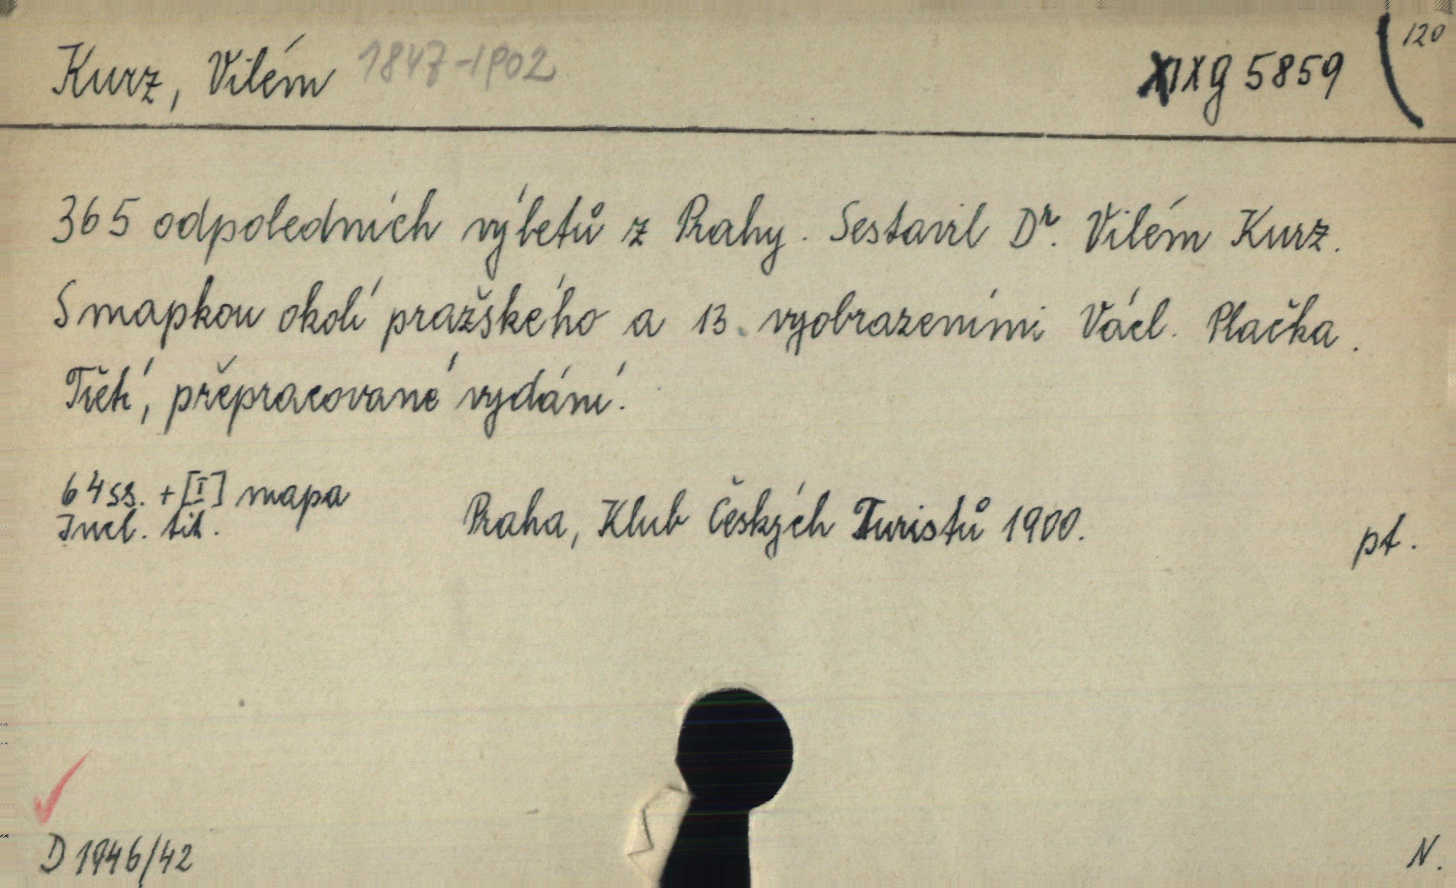 Kurz, Vilém 1847-1902 XIX g 5859 (120
365 odpoledních výletů z Prahy. Sestavil Dr. Vilém Kurz.
S mapkou okolí pražského a 13. vyobrazeními Václ. Plačka.
Třetí, přepracované vydání.
64 ss. + [I] mapa
Incl. tit.
Praha, Klub Českých Turistů 1900.
pt.
D 1946/42
N.